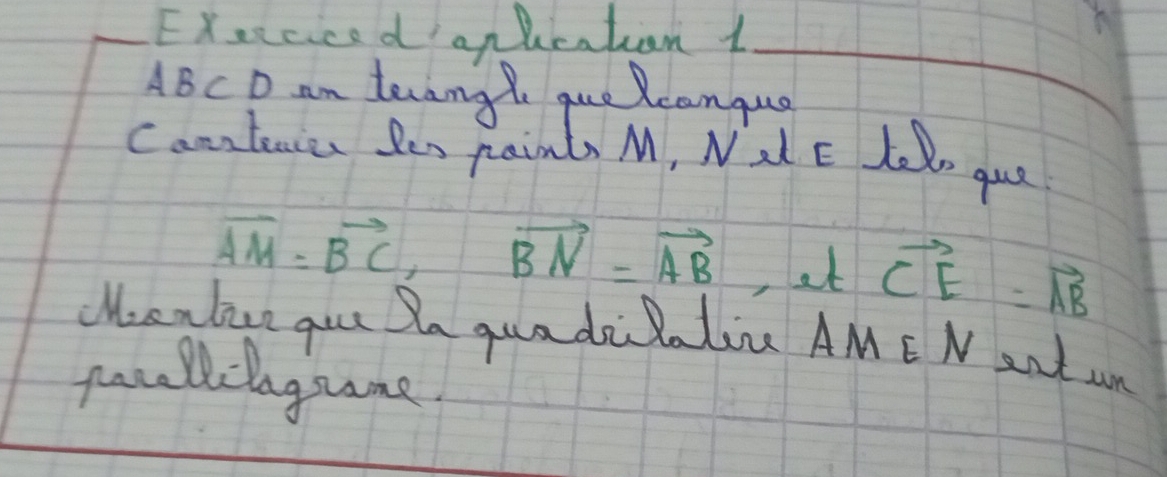 Exercice d'aplication 1
ABCD un triangle quelconque
Construire les points M, N et E tels que:
AM = BC, BN = AB, et CE = AB
Montrer que la quadrilatère AMEN est un
parallélograme.